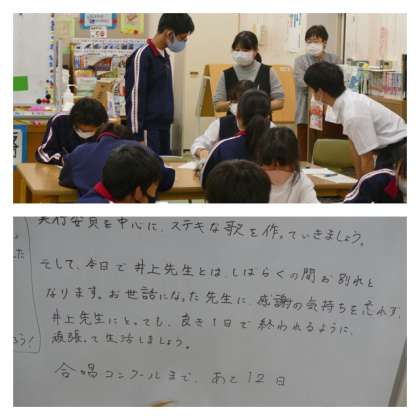 実行委員を中心に、ステキな歌を作っていきましょう。
そして、今日で井上先生とは、しばらくの間お別れと
なります。お世話になった先生に、感謝の気持ちを忘れず、
井上先生にとっても、良き1日で終われるように、
頑張って生活しましょう。
合唱コンクールまで、あと12日
た
う!